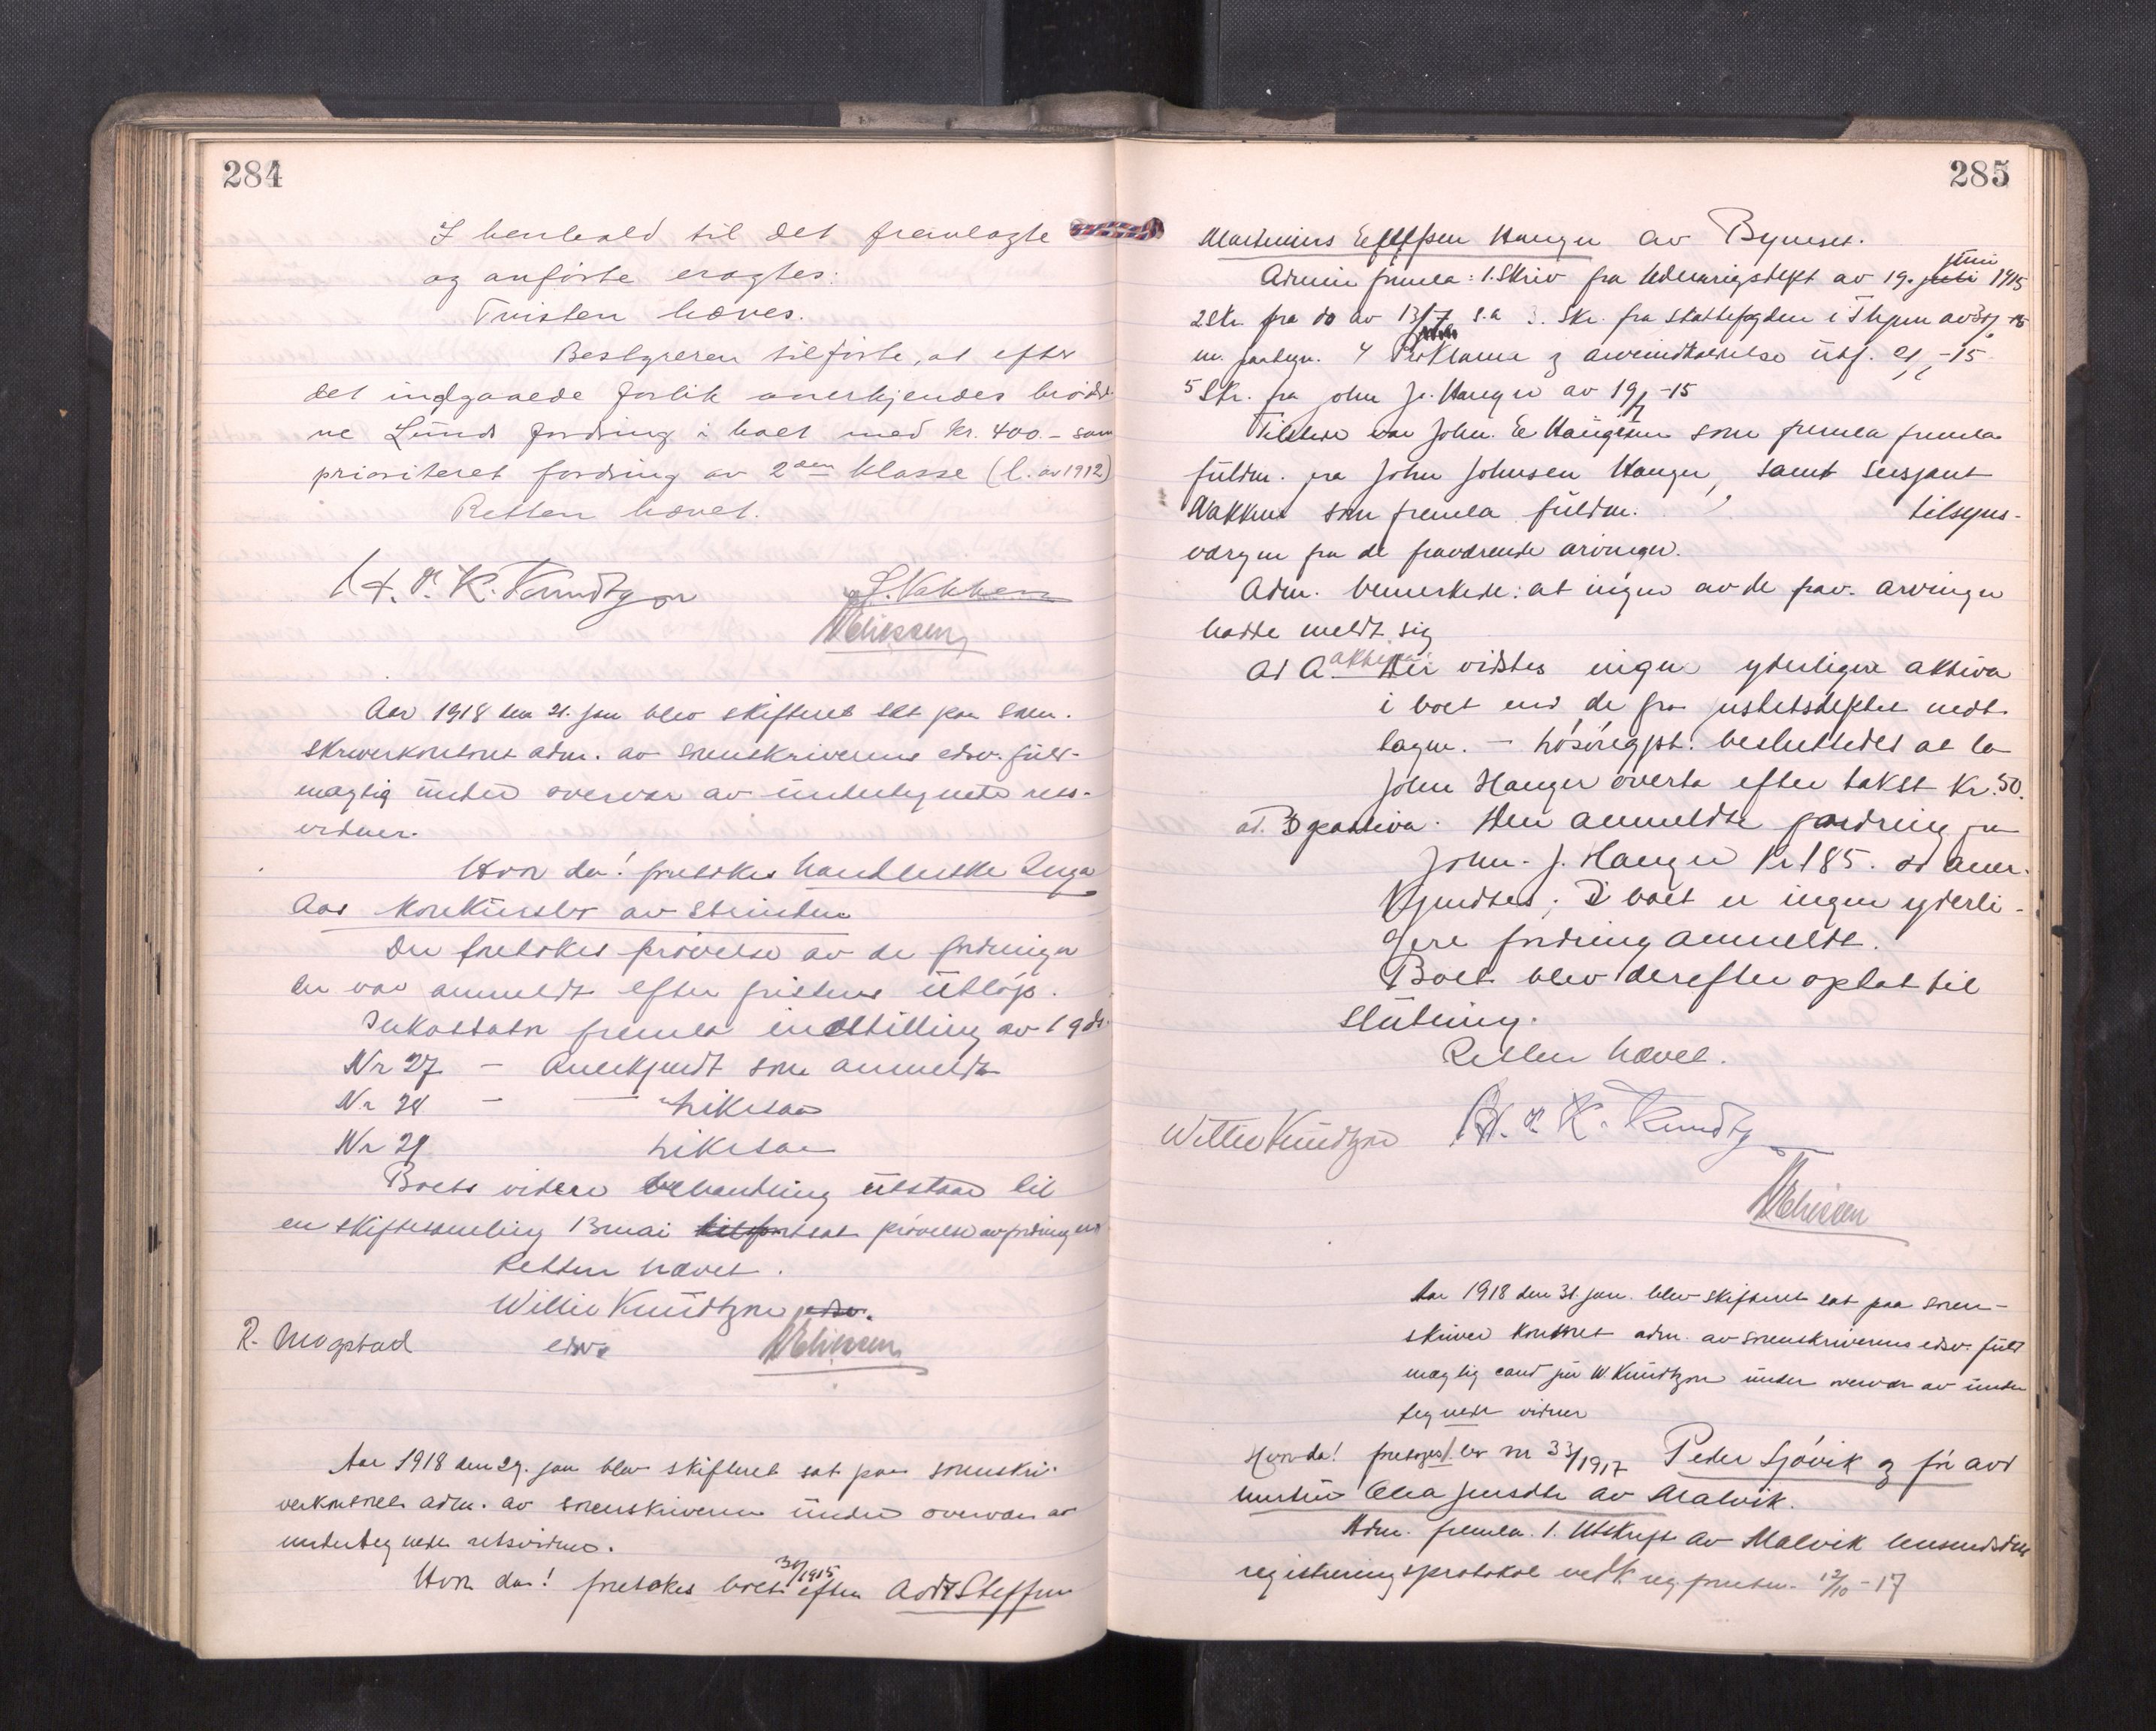 284
I henhold til det fremlagte
og anførte eragtes:
Tvisten hæves.
Bestyreren tilførte, at efter
det indgaaede forlik anerkjendes brødr.
ne Lunds fordring i boet med kr. 400.- som
prioriteret fordring av 2den klasse (l. av 1912)
Retten hævet.
H. P. K. Knudtzon
Aar 1918 den 21. jan blev skifteret sat paa soren-
skriverkontoret adm. av sorenskriverens edsv. fuld-
mægtig under overvær av undertegnede rets-
vidner.
Hvor da! foretokes handlerske Inga
Aas konkursbo av Strinden
Der foretokes prøvelse av de fordringer
der var anmeldt efter fristens utløp.
Inkassator fremla indstilling av 19 ds.
Nr 27 - Anerkjendt som anmeldt
Nr 28 - — likesaa
Nr 29 likesaa
Boets videre behandling utstaar til
en skiftesamling 13 mai fortsat prøvelse av fordringer
Retten hævet.
Willie Knudtzon edsv.
R. Mogstad edsv.
Aar 1918 den 29. jan blev skifteret sat paa sorenskri-
verkontoret adm. av sorenskriveren under overvær av
undertegnede retsvidner.
Hvor da! foretokes boet 31/1915 efter Arnt Steffen
285
Martinius Hangen av Byneset.
Admin fremla: 1. Skriv fra Utenrigsdept av 19. juli juni 1915
2 Skr. fra do av 13/7 s.a 3. Skr. fra skattefogden i Thjem av
4 Proklama & arveindkaldelse utf. -15
5 Skr. fra John J. Hangen av 19/7 -15
Tilstede var John E Haugen som fremla
fuldm. fra John Johnsen Hangen, samt sersjant
Nakken som fremla fuldm. tilsyns-
vergen fra de fraværende arvinger.
Adm. bemerkede: at ingen av de frav. arvinger
hadde meldt sig
Ad A aktiva: Der vistes ingen yderligere aktiva
i boet end de fra justitsdeptet mot-
tagne. - besluttedes at la
John Hangen overta efter takst kr. 50.
ad. B passiva. Den anmeldte fordring fra
John J. Hangen Kr 185. aner-
kjendtes; I boet er ingen yderli-
gere fordring anmeldt.
Boet blev derefter optat til
slutning.
Retten hævet.
Willie Knudtzon H. P. K. Knudtzon
Aar 1918 den 31. jan. blev skifteret sat paa soren-
skriver kontoret adm. av sorenskriverens edsv. fuld
mægtig cand jur W Knudtzon under overvær av under
tegnede vidner
Hvor da! foretoges bo nr 33/1917 Peder Sjøvik og før avd
hustru av Malvik.
Adm. fremla. 1. Utskrift av Malvik lensmands
registreringsprotokol vedk reg forretn. 12/10 -17